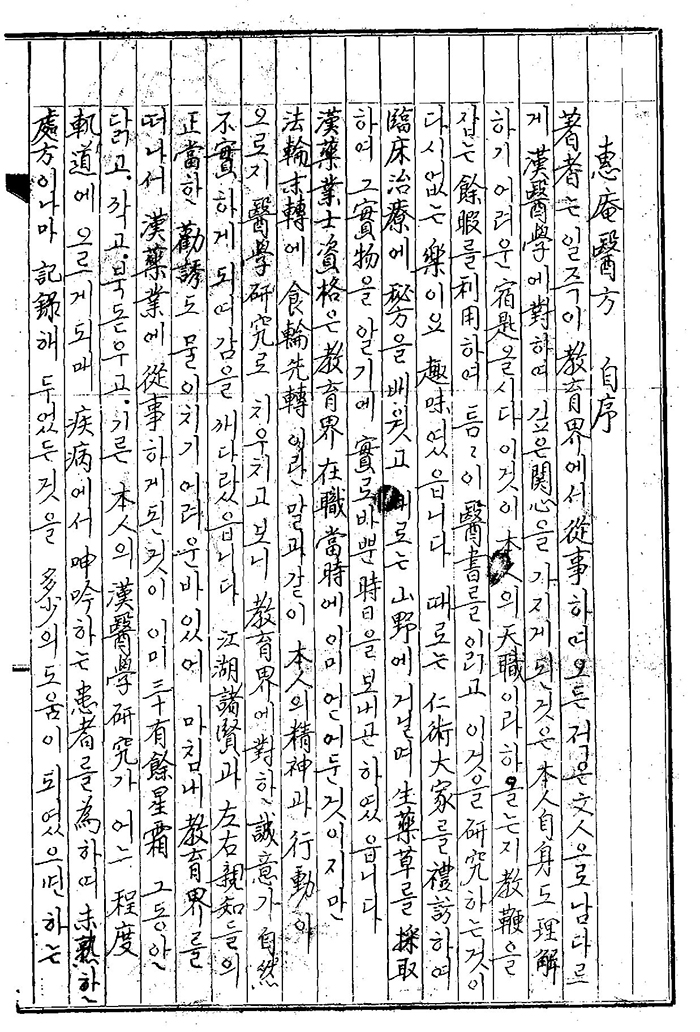 惠庵醫方 自序
著者는 일즉이 教育界에서 從事하며 오든 적은 文人으로 남다르
게 漢醫學에 對하여 깊은 関心을 가지게 된것은 本人自身도 理解
하기 어려운 宿題올시다 이것이 本人의 天職이라 하올는지 教鞭을
잡는 餘暇를 利用하여 틈々이 醫書를 읽고 이것을 研究하는것이
다시없는 樂이요 趣味였읍니다 때로는 仁術大家를 禮訪하여
臨床治療에 秘方을 배웠고 때로는 山野에 거닐며 生藥草를 採取
하여 그 實物을 알기에 實로 바쁜 時日을 보내곤 하였읍니다
漢藥業士 資格은 教育界 在職 當時에 이미 얻어둔것이지만
法輪未轉에 食輪先轉이란 말과같이 本人의 精神과 行動이
오로지 醫學研究로 치우치고 보니 教育界에 對한 誠意가 自然
不實하게 되여감을 깨다랐읍니다 江湖諸賢과 左右親知들의
正當한 勸誘도 물이치기 어려운바 있어 마침내 教育界를
떠나서 漢藥業에 從事하게된것이 이미 三十有餘星霜 그동안
닭고. 깍고. 북돋우고. 기른 本人의 漢醫學研究가 어느 程度
軌道에 오르게되매 疾病에서 呻吟하는 患者를 為하여 未熟한
處方이나마 記録해 두었든것을 多少의 도움이 되였으면 하는